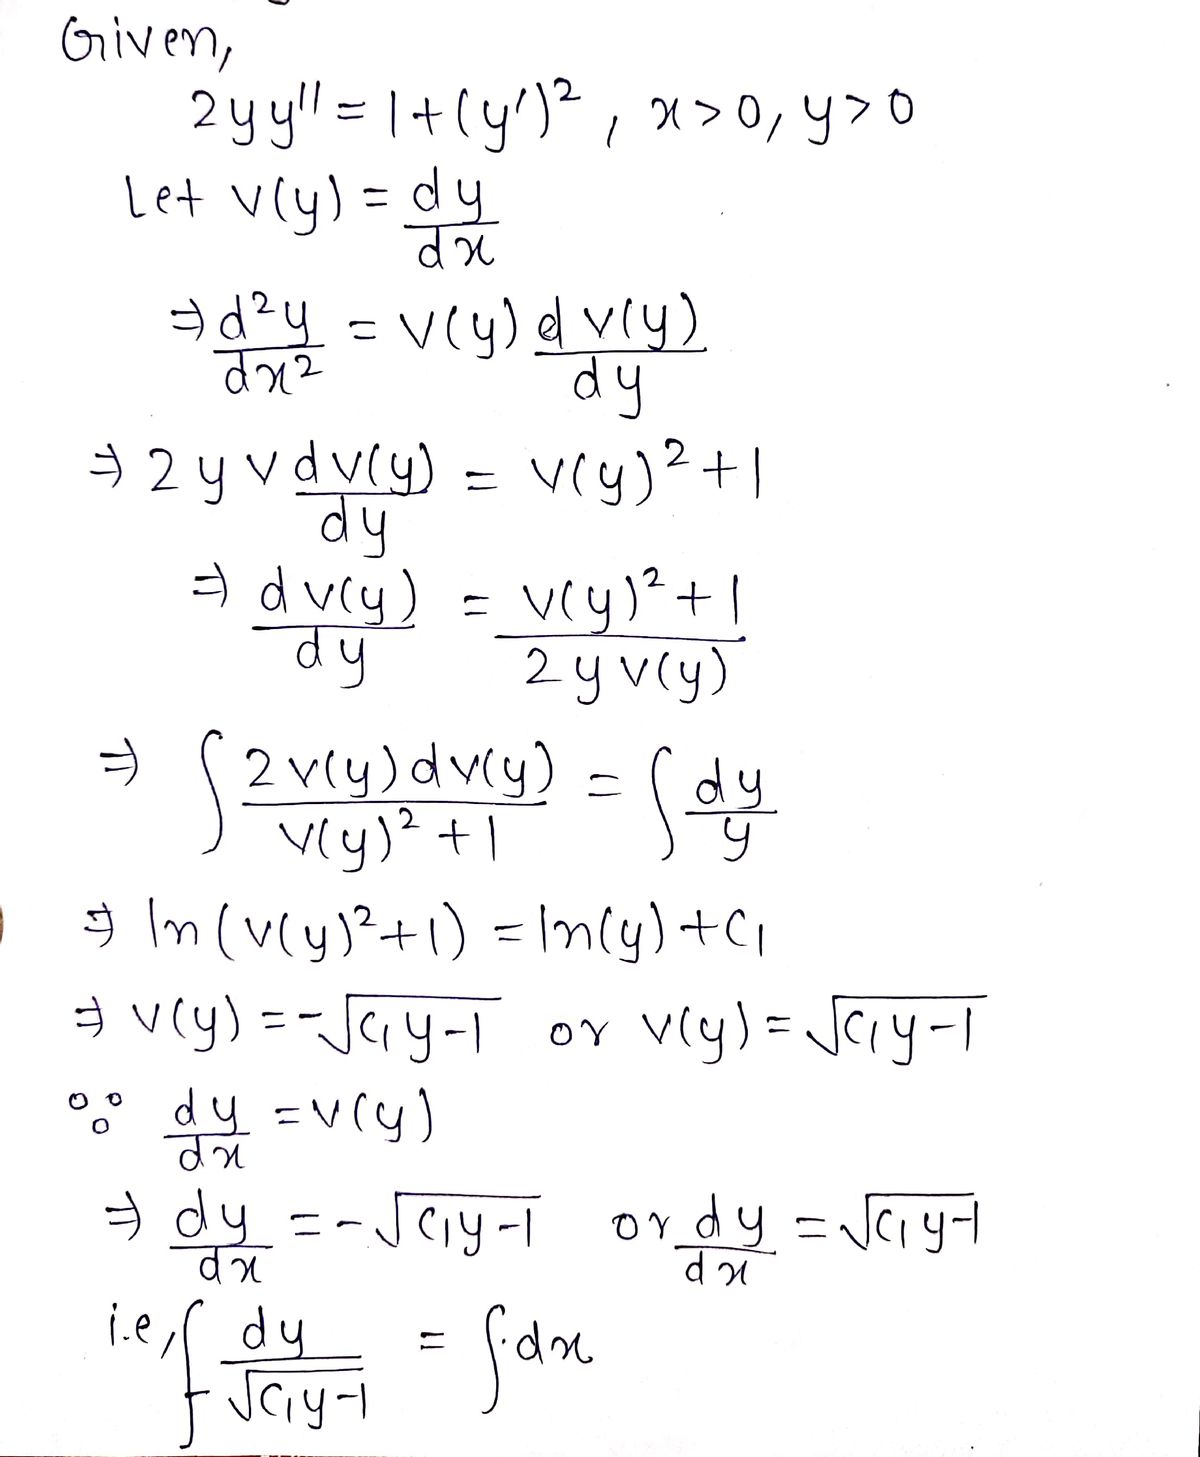 Given,
2yy'' = 1+(y')², x>0, y>0
Let v(y) = dy/dx
⇒ d²y/dx² = v(y) d v(y)/dy
⇒ 2 y v dv(y)/dy = v(y)²+1
⇒ dv(y)/dy = v(y)²+1/2yv(y)
⇒ ∫ 2v(y)dv(y)/v(y)²+1 = ∫ dy/y
⇒ ln(v(y)²+1) = ln(y)+C₁
⇒ v(y) = -√C₁y-1 or v(y) = √C₁y-1
∵ dy/dx = v(y)
⇒ dy/dx = -√C₁y-1 or dy/dx = √C₁y-1
i.e, ∫ dy/-√C₁y-1 = ∫dx